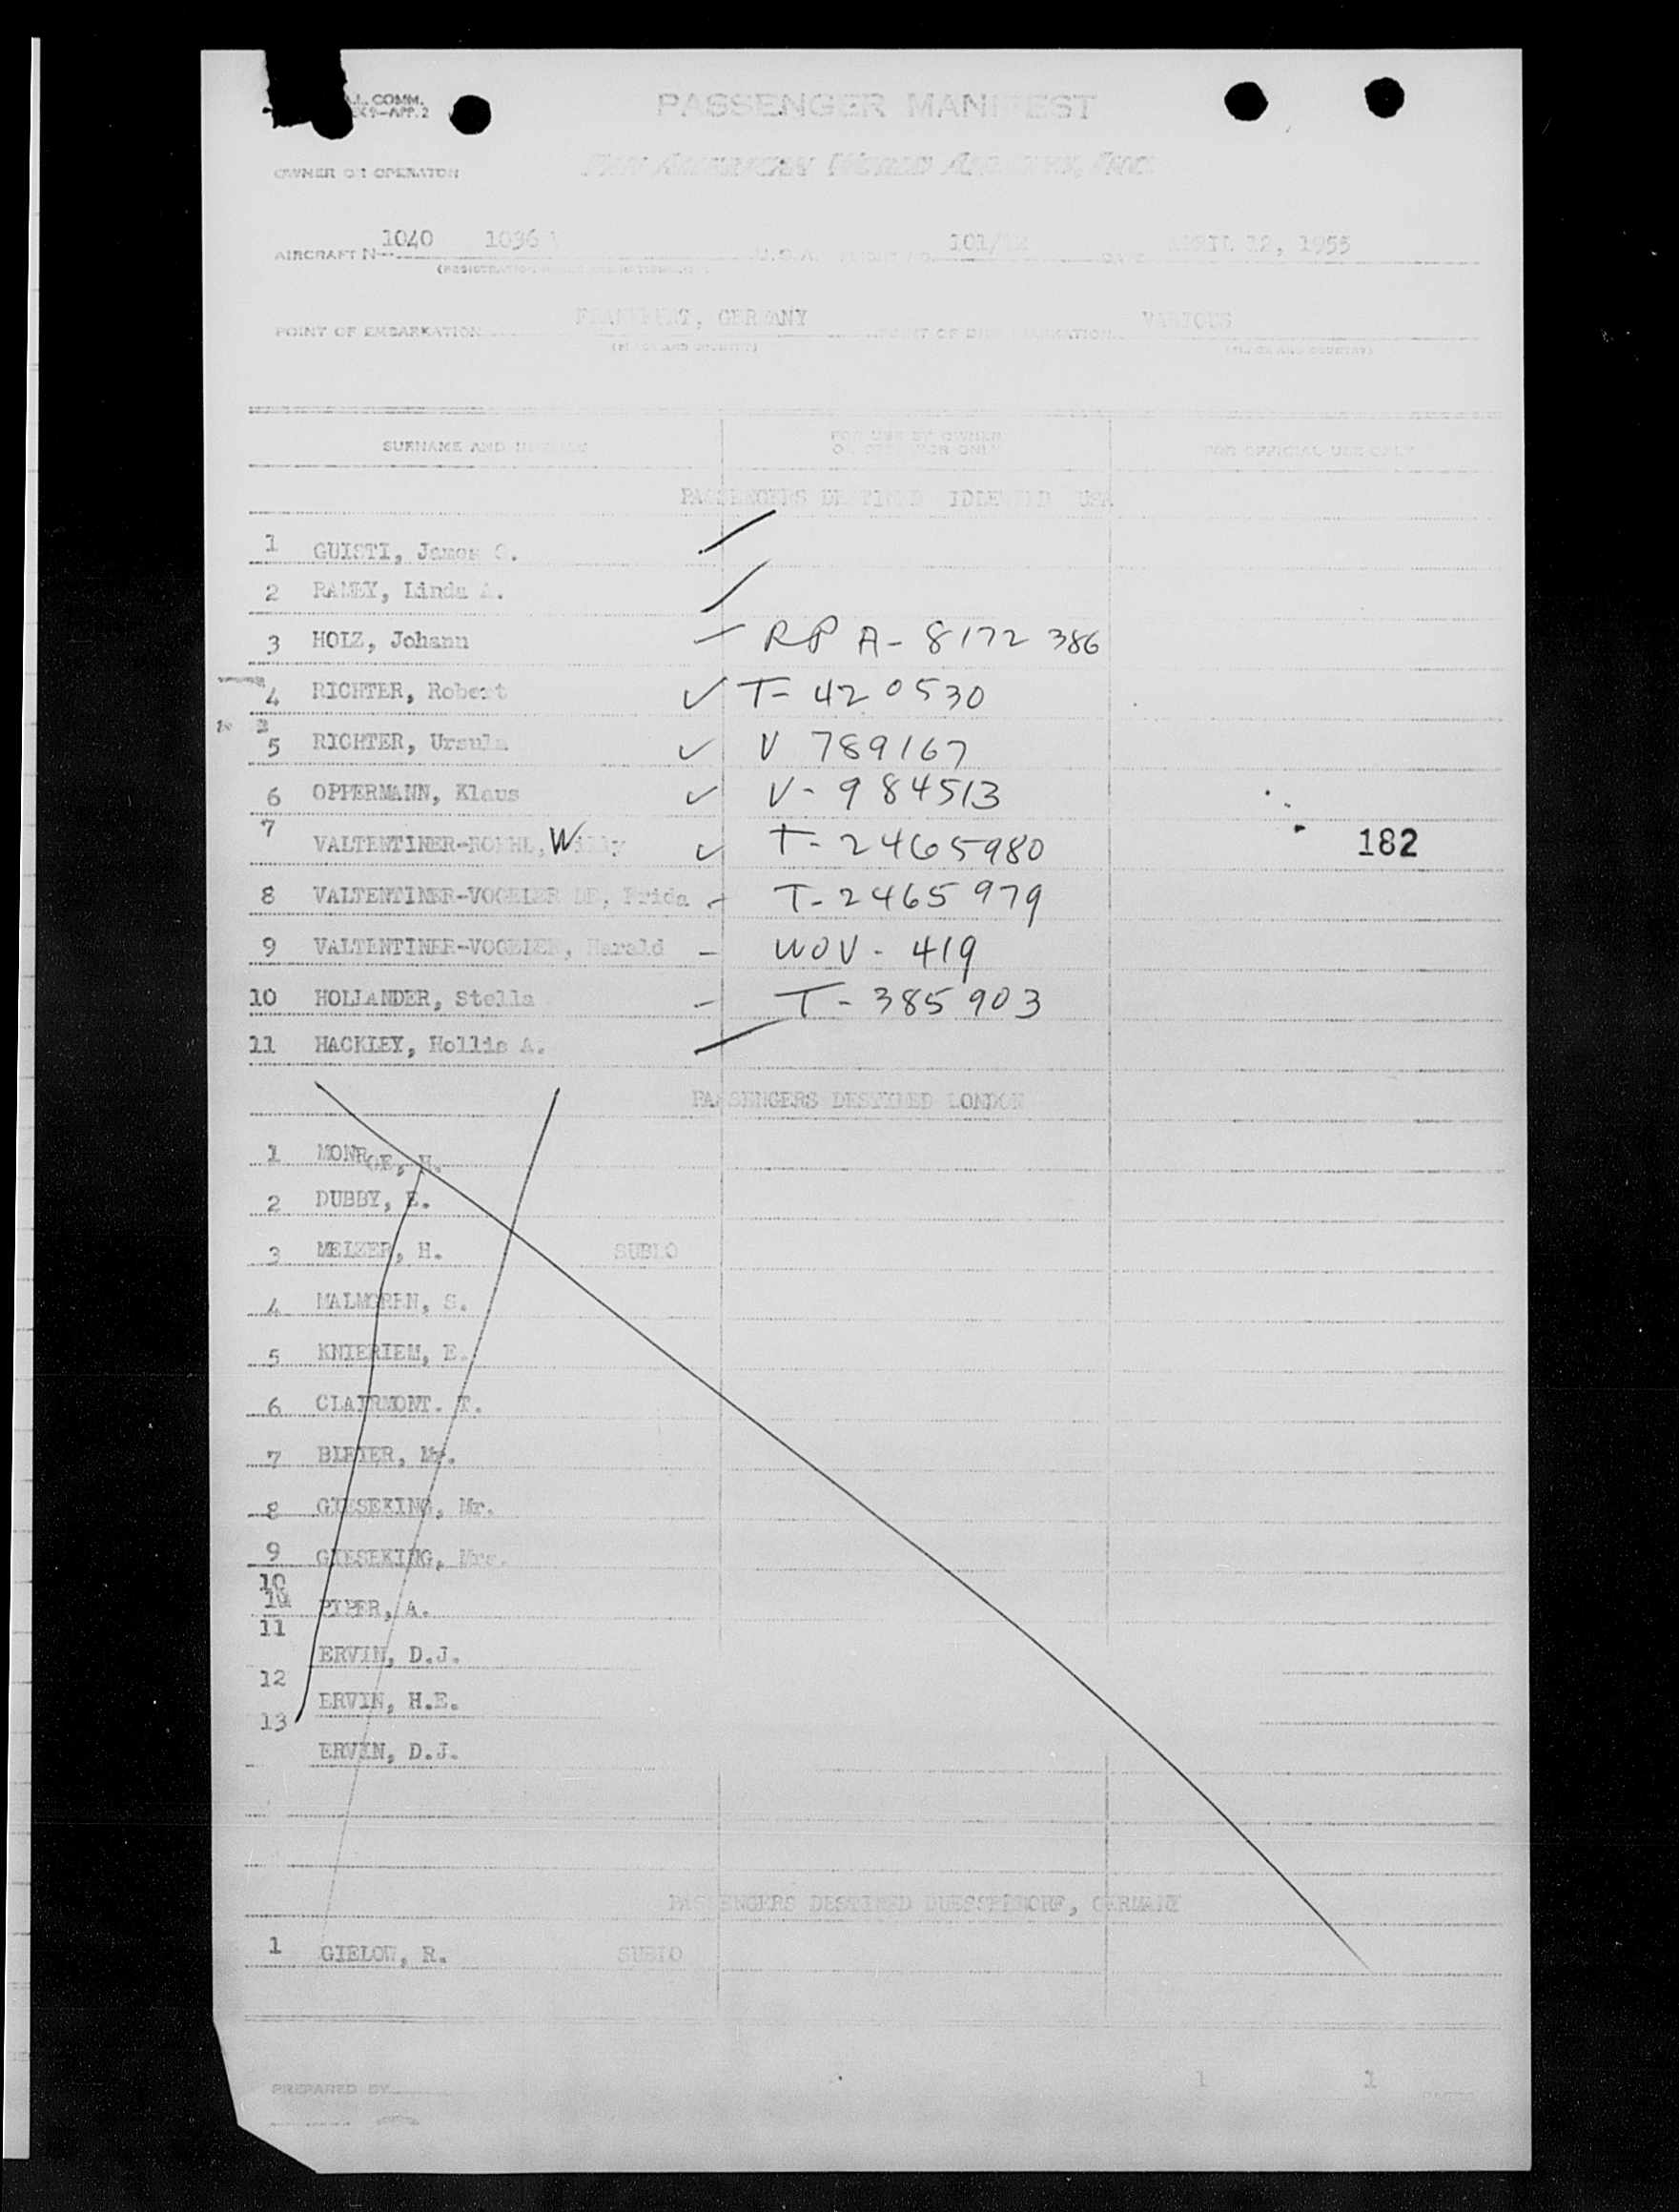 COMM.
APP. 2
PASSENGER MANIFEST
OWNER OR OPERATOR
PAN AMERICAN WORLD AIRWAYS, INC.
AIRCRAFT N 1040 1036 U.S.A. FLIGHT NO. 101/12 DATE APRIL 12, 1955
POINT OF EMBARKATION FRANKFURT, GERMANY POINT OF DISEMBARKATION VARIOUS
(PLACE AND COUNTRY) (PLACE AND COUNTRY)
SURNAME AND INITIALS FOR USE BY OWNER OR OPERATOR ONLY FOR OFFICIAL USE ONLY
PASSENGERS DESTINED IDLEWILD USA
1 GUISTI, James
2 RAMEY, Linda
3 HOLZ, Johann RP A-8172 386
4 RICHTER, Robert T-420530
5 RICHTER, Ursula V 789167
6 OPPERMANN, Klaus V-984513
7 VALTENTINER-ROEHL, Willy T-2465980 182
8 VALTENTINER-VOGELER DE, Frida T-2465979
9 VALTENTINER-VOGELER, Harald WOV-419
10 HOLLANDER, Stella T-385903
11 HACKLEY, Hollis A.
PASSENGERS DESTINED LONDON
1 MONROE, H.
2 DUBBY, E.
3 MELZER, H. SUBLO
4 MALMGREN, S.
5 KNIERIEM, E.
6 CLAIRMONT. T.
7 Mr.
8 GIESEKING, Mr.
9 GIESEKING, Mrs.
10
10 PIPER, A.
11
ERVIN, D.J.
12
ERVIN, H.E.
13
ERVIN, D.J.
PASSENGERS DESTINED DUESSELDORF, GERMANY
1 GIELOW, R. SUBLO
PREPARED BY 1 1